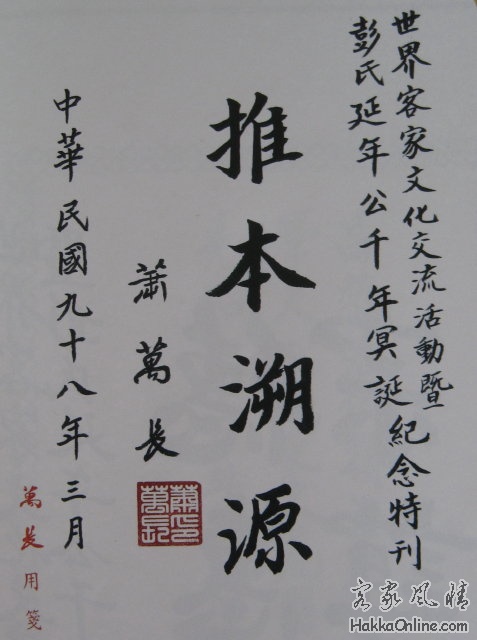 世界客家文化交流活動暨
彭氏延年公千年冥誕紀念特刊
推本溯源
蕭萬長
蕭萬長印
中華民國九十八年三月
萬長用箋
客家風情
HakkaOnline.com